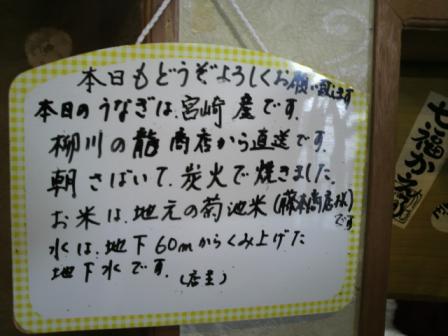 本日もどうぞよろしくお願い致します
本日のうなぎは、宮崎産です。
柳川の龍商店から直送です。
朝さばいて、炭火で焼きました。
お米は、地元の菊池米(藤本商店様)です
水は、地下60mからくみ上げた
地下水です。(店主)
七福かえる